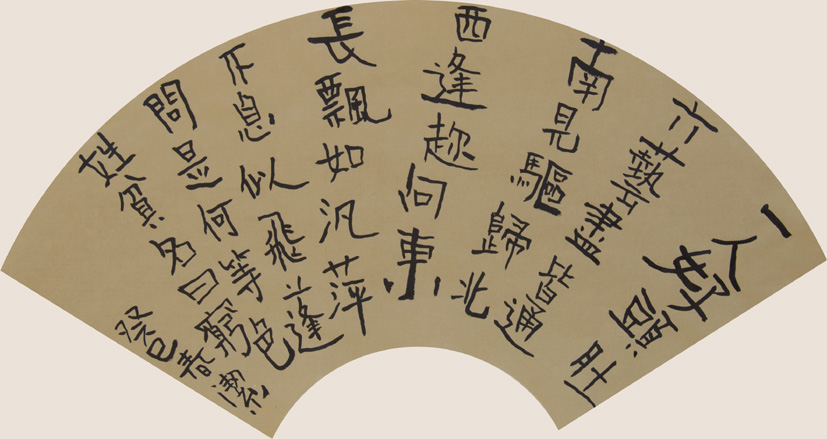 一人好頭肚
六藝盡皆通
南見驅歸北
西逢趂向東
長飄如汎萍
不息似飛蓬
問是何等色
姓貧名曰窮
癸巳春潔